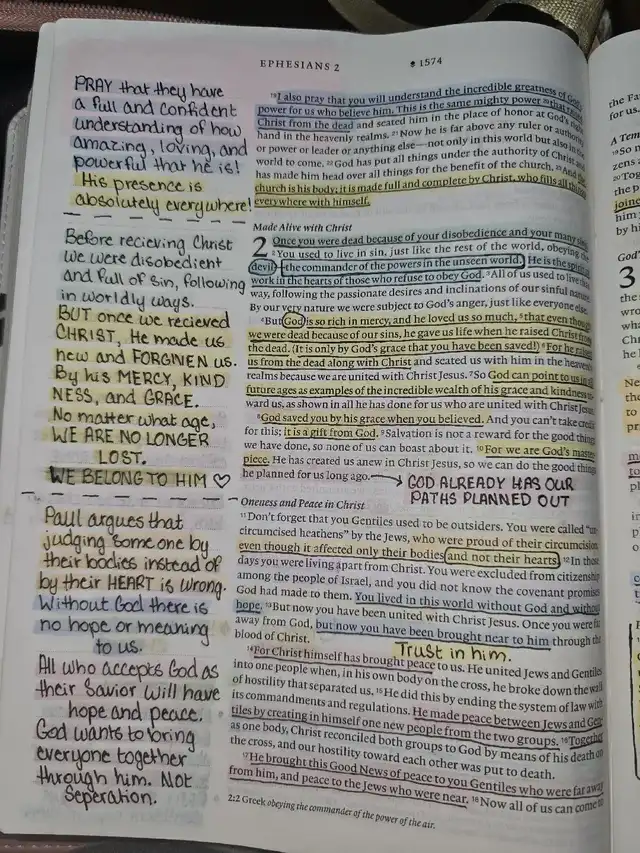 EPHESIANS 2
1574
PRAY that they have
a full and confident
understanding of how
amazing, loving, and
powerful that he is!
His presence is
absolutely everywhere!
Before recieving Christ
we were disobedient
and full of sin, following
in worldly ways.
BUT once we recieved
CHRIST, He made us
new and FORGIVEN us.
By his MERCY, KIND
NESS, and GRACE.
No matter what age,
WE ARE NO LONGER
LOST.
WE BELONG TO HIM ♡
Paul argues that
judging someone by
their bodies instead of
by their HEART is wrong.
Without God there is
no hope or meaning
to us.
All who accepts God as
their Savior will have
hope and peace.
God wants to bring
everyone together
through him. Not
Seperation.
19 I also pray that you will understand the incredible greatness of God's
power for us who believe him. This is the same mighty power 20 that raised
Christ from the dead and seated him in the place of honor at God's right
hand in the heavenly realms. 21 Now he is far above any ruler or authority
or power or leader or anything else—not only in this world but also in the
world to come. 22 God has put all things under the authority of Christ and
has made him head over all things for the benefit of the church. 23 And the
church is his body; it is made full and complete by Christ, who fills all things
everywhere with himself.
Made Alive with Christ
2 Once you were dead because of your disobedience and your many sins.
2 You used to live in sin, just like the rest of the world, obeying the
devil—the commander of the powers in the unseen world. He is the spirit at
work in the hearts of those who refuse to obey God. 3 All of us used to live that
way, following the passionate desires and inclinations of our sinful nature.
By our very nature we were subject to God's anger, just like everyone else.
4 But God is so rich in mercy, and he loved us so much, 5 that even though
we were dead because of our sins, he gave us life when he raised Christ from
the dead. (It is only by God's grace that you have been saved!) 6 For he raised
us from the dead along with Christ and seated us with him in the heavenly
realms because we are united with Christ Jesus. 7 So God can point to us in all
future ages as examples of the incredible wealth of his grace and kindness to-
ward us, as shown in all he has done for us who are united with Christ Jesus.
8 God saved you by his grace when you believed. And you can't take credit
for this; it is a gift from God. 9 Salvation is not a reward for the good things
we have done, so none of us can boast about it. 10 For we are God's master-
piece. He has created us anew in Christ Jesus, so we can do the good things
he planned for us long ago.
GOD ALREADY HAS OUR
PATHS PLANNED OUT
Oneness and Peace in Christ
11 Don't forget that you Gentiles used to be outsiders. You were called "un-
circumcised heathens" by the Jews, who were proud of their circumcision,
even though it affected only their bodies and not their hearts. 12 In those
days you were living apart from Christ. You were excluded from citizenship
among the people of Israel, and you did not know the covenant promises
God had made to them. You lived in this world without God and without
hope. 13 But now you have been united with Christ Jesus. Once you were far
away from God, but now you have been brought near to him through the
blood of Christ.
Trust in him.
14 For Christ himself has brought peace to us. He united Jews and Gentiles
into one people when, in his own body on the cross, he broke down the wall
of hostility that separated us. 15 He did this by ending the system of law with
its commandments and regulations. He made peace between Jews and Gen-
tiles by creating in himself one new people from the two groups. 16 Together
as one body, Christ reconciled both groups to God by means of his death on
the cross, and our hostility toward each other was put to death.
17 He brought this Good News of peace to you Gentiles who were far away
from him, and peace to the Jews who were near. 18 Now all of us can come to
2:2 Greek obeying the commander of the power of the air.
the Fa
for us.
A Tem
19 So n
zens
20 Tog
the p
joine
him
by hi
God'
3